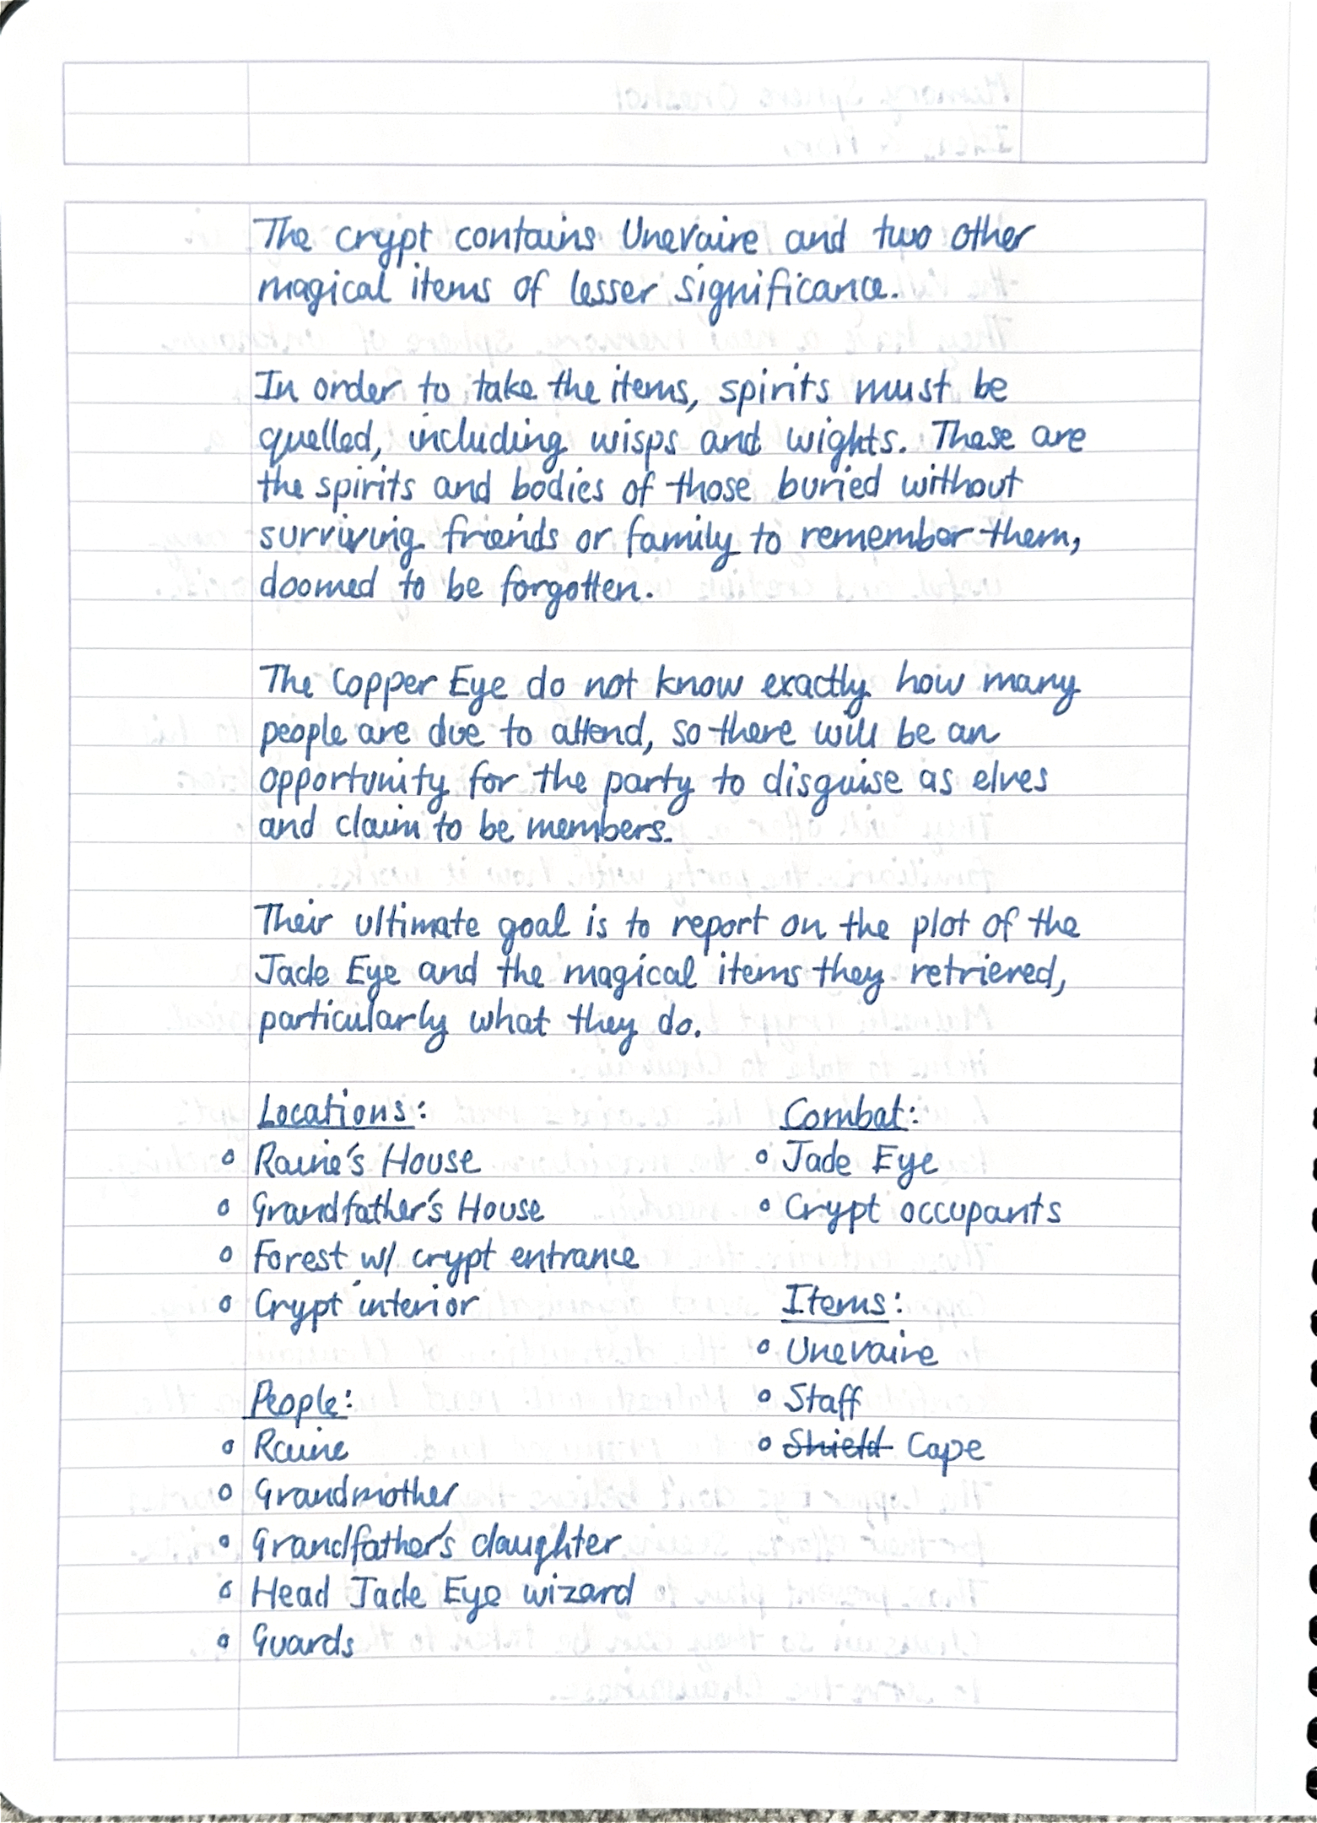 The crypt contains Unevaire and two other
magical items of lesser significance.
In order to take the items, spirits must be
quelled, including wisps and wights. These are
the spirits and bodies of those buried without
surviving friends or family to remember them,
doomed to be forgotten.
The Copper Eye do not know exactly how many
people are due to attend, so there will be an
opportunity for the party to disguise as elves
and claim to be members.
Their ultimate goal is to report on the plot of the
Jade Eye and the magical items they retrieved,
particularly what they do.
Locations:
Raine's House
Grandfather's House
Forest w/ crypt entrance
Crypt interior
People:
Raine
Grandmother
Grandfather's daughter
Head Jade Eye wizard
Guards
Combat:
Jade Eye
Crypt occupants
Items:
Unevaire
Staff
Shield Cape